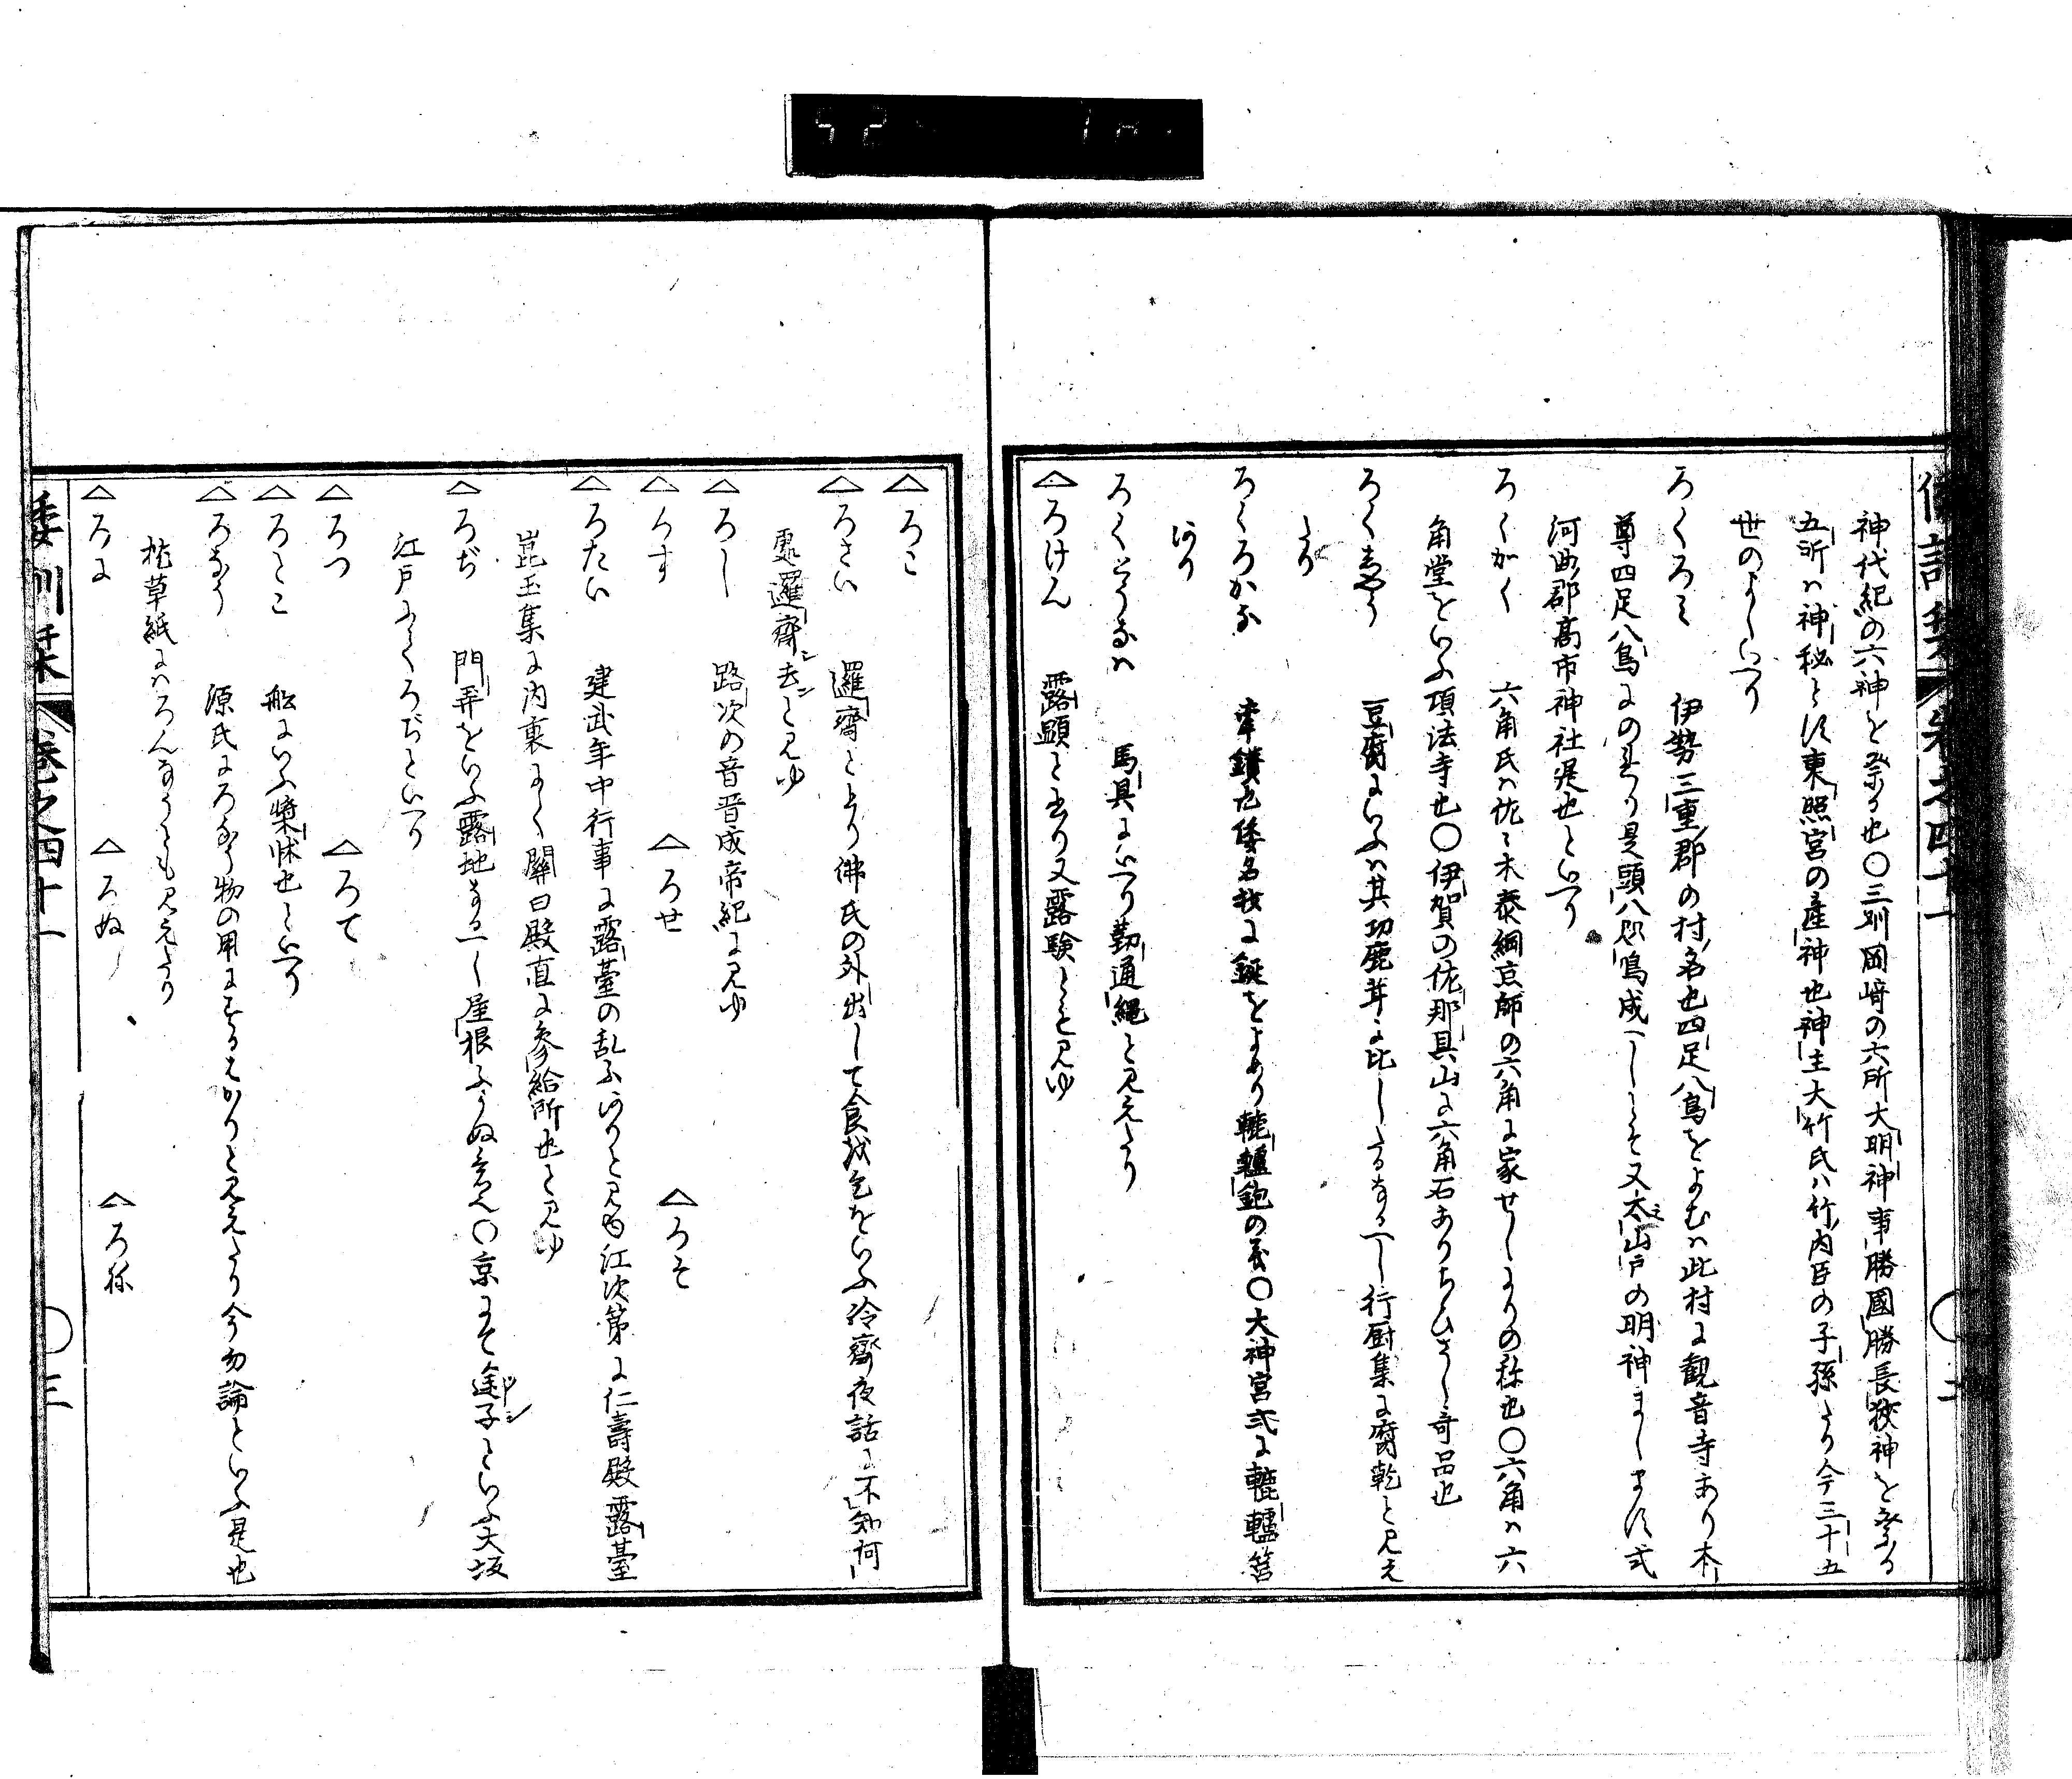 神代紀の六神を祭る也〇三州岡崎の六所大明神事勝國勝長狹神を祭る
五所ハ神秘とす東照宮の産神也神主大竹氏ハ竹内臣の子孫たり今三十五
世のよしいへり
ろくろみ 伊勢三重郡の村名也四足八鳥をよむハ此村に観音寺あり本
尊四足八鳥にのれり是頭八咫鳴成へしとそ又太山戸の明神まします式
河曲郡高市神社是也といへり
ろくかく 六角氏ハ佐々木泰綱京師の六角に家せしよりの称也〇六角ハ六
角堂をいふ頂法寺也〇伊賀の佐那具山に六角石ありちひさし奇品也
ろくじやう 豆腐にいふハ其功鹿茸に比したるなるへし行厨集に腐乾と見え
たり
ろくろかな 牽鑚也倭名抄に鋋をよめり轆轤鉋の義〇大神宮式に轆轤筥
あり
ろくとうなハ 馬具にいへり勤通繩と見えたり
△ろけん 露顕と書り又露験とも見ゆ
△ろこ
△ろさい 邏齋とよめり佛氏の外出して食物を乞をいふ冷齋夜話に不知何
處邏齋シ去シと見ゆ
△ろし 路次の音晋成帝紀に見ゆ
△ろす △ろせ △ろそ
△ろたい 建武年中行事に露臺の乱ふありと見ゆ江次第に仁壽殿露臺
崑玉集に内裏にく關白殿直に参給所也と見ゆ
△ろぢ 門弄をいふ露地なるへし屋根ふかぬ意也〇京にて途子といふ大坂
江戸ふくろぢといへり
△ろつ △ろて
△ろとこ 船にいふ槳牀也といへり
△ろなう 源氏にろなう物の用にするはかりと見えたり今勿論といふ是也
枕草紙にハろんなうとも見えたり
△ろに △ろぬ △ろね
倭訓栞 巻之四十一 〇三